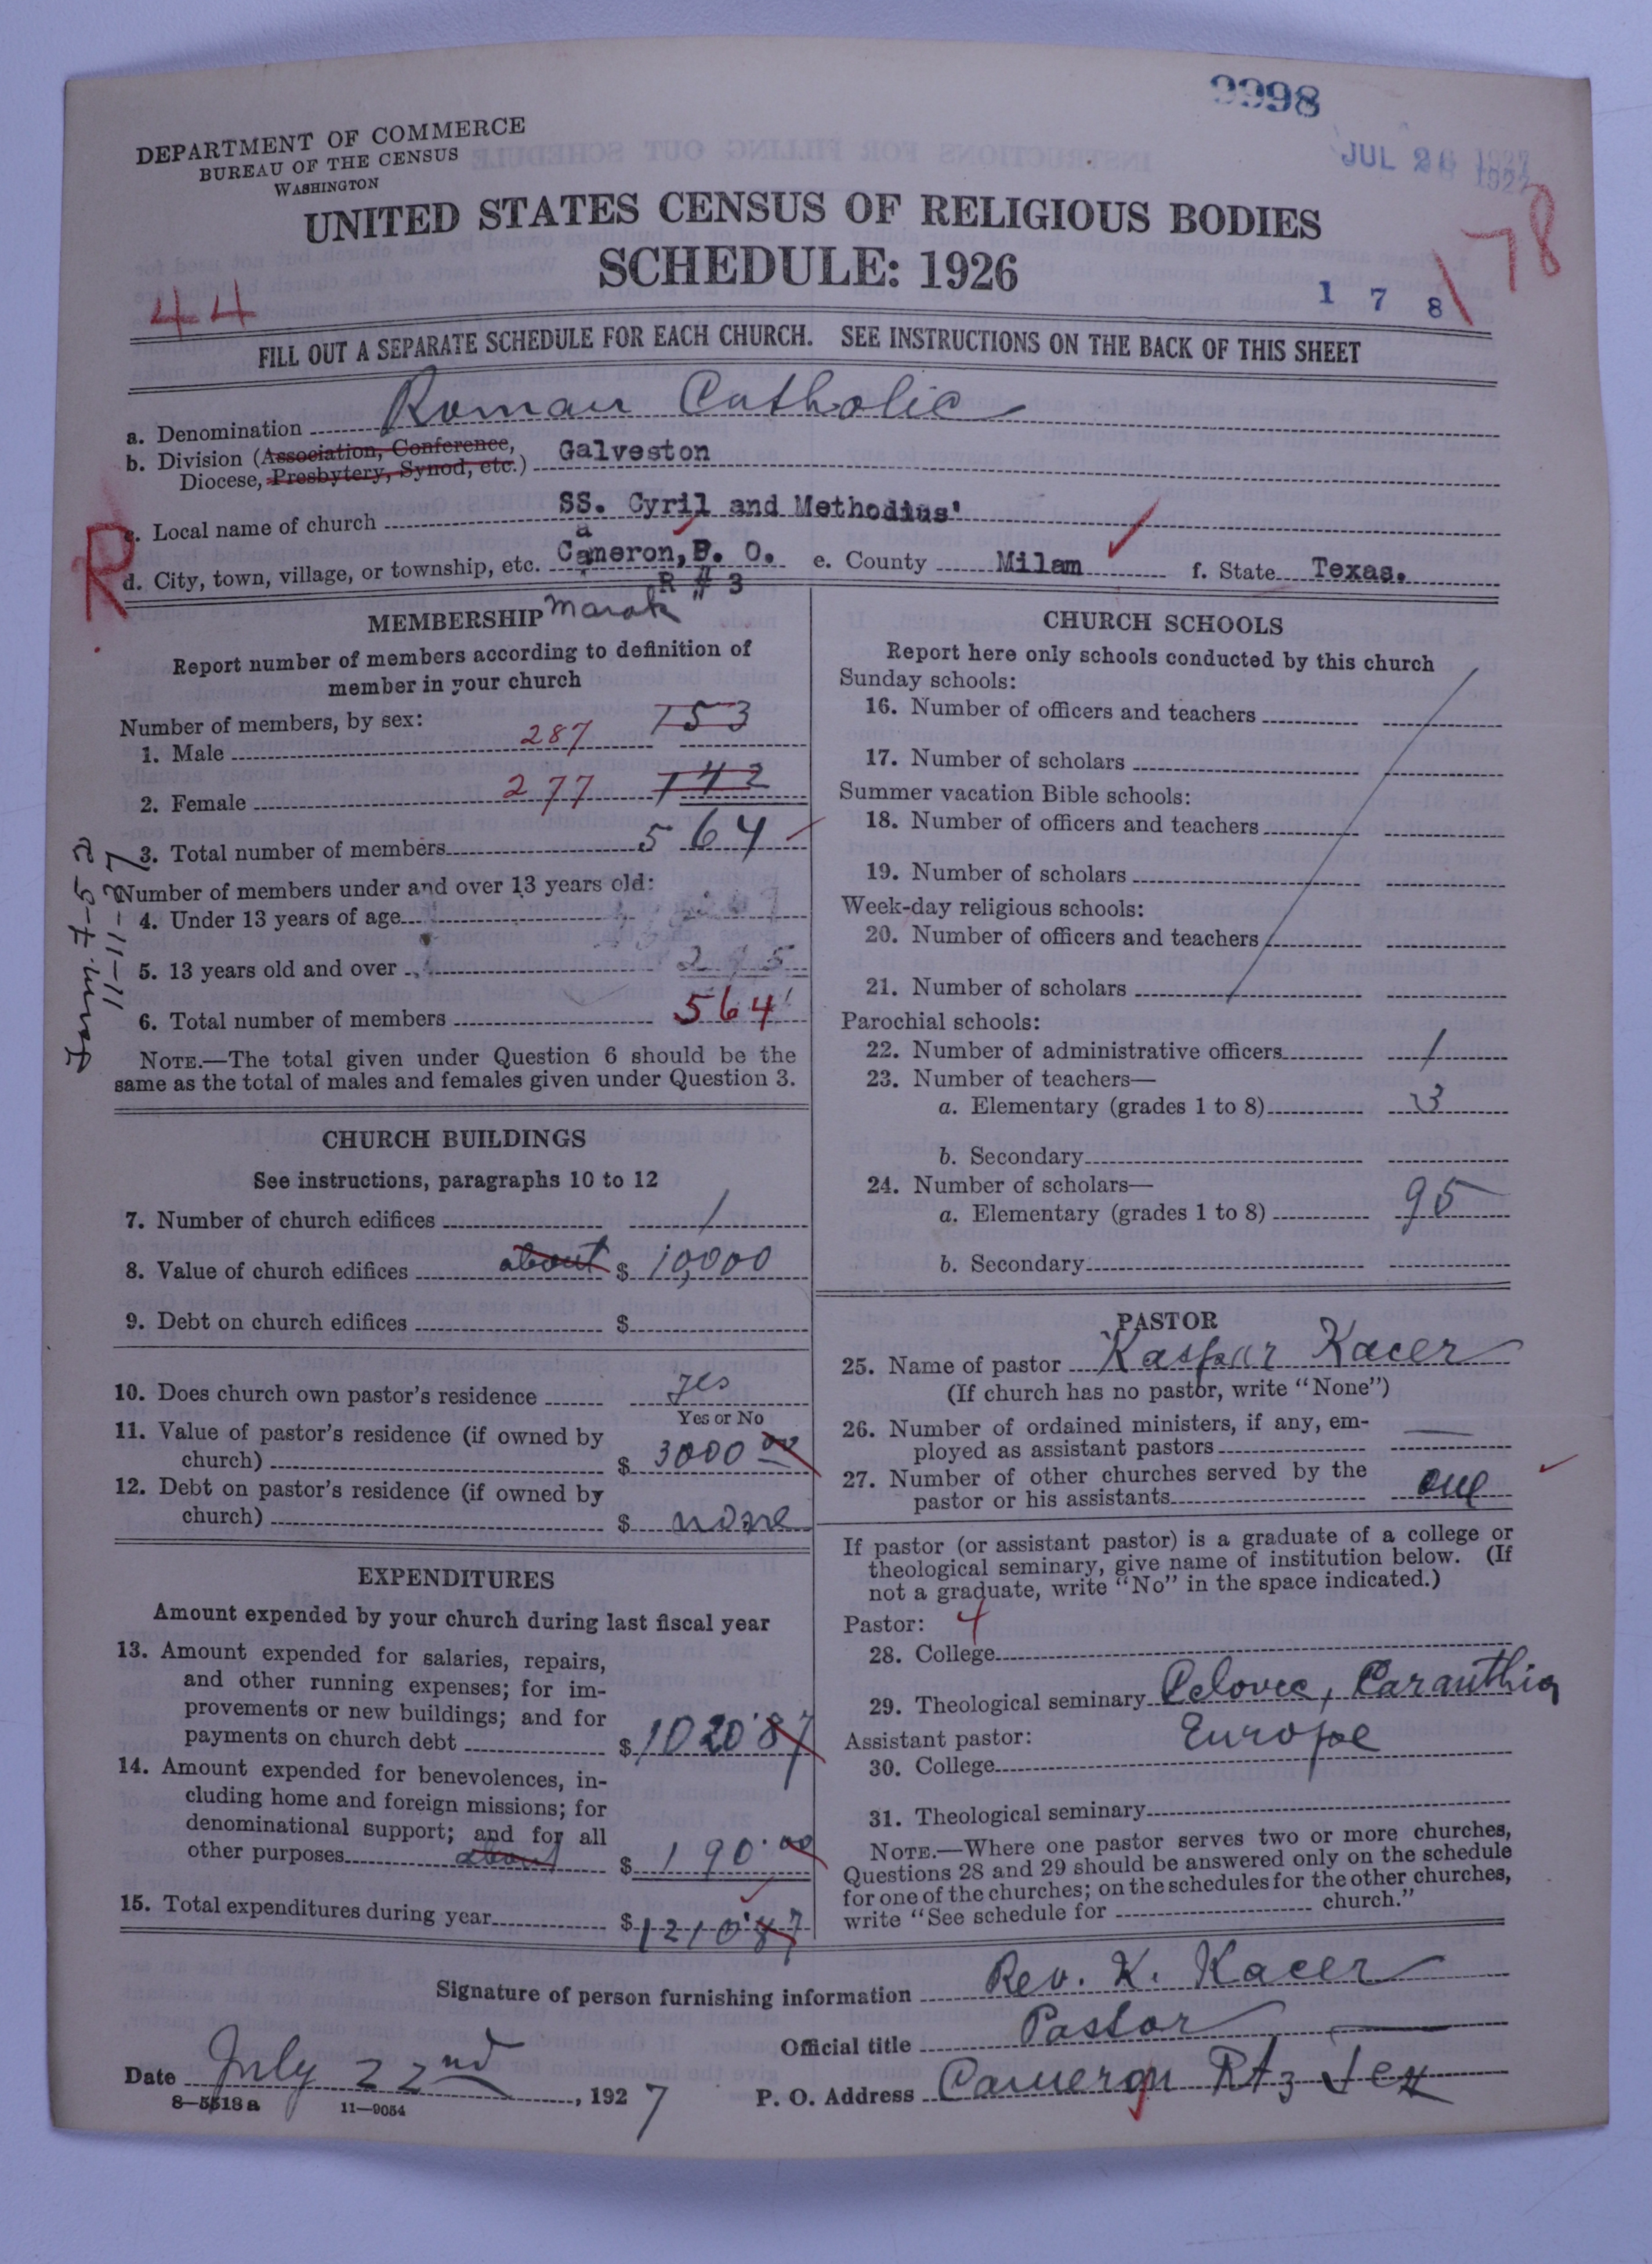 9998
DEPARTMENT OF COMMERCE
BUREAU OF THE CENSUS
WASHINGTON
JUL 26 1927
UNITED STATES CENSUS OF RELIGIOUS BODIES
SCHEDULE: 1926
44
1 7 8
178
FILL OUT A SEPARATE SCHEDULE FOR EACH CHURCH. SEE INSTRUCTIONS ON THE BACK OF THIS SHEET
a. Denomination Roman Catholic
b. Division (Association, Conference,
Diocese, Presbytery, Synod, etc.) Galveston
R
c. Local name of church SS. Cyril and Methodius'
d. City, town, village, or township, etc. Cameron, P. O. e. County Milam f. State Texas.
R # 3
Marak
MEMBERSHIP
Report number of members according to definition of
member in your church
Number of members, by sex:
1. Male 287 153
2. Female 277 142
3. Total number of members 564
Number of members under and over 13 years old:
4. Under 13 years of age
5. 13 years old and over 295
6. Total number of members 564
NOTE.—The total given under Question 6 should be the
same as the total of males and females given under Question 3.
CHURCH BUILDINGS
See instructions, paragraphs 10 to 12
7. Number of church edifices 1
8. Value of church edifices about $ 10,000
9. Debt on church edifices $
10. Does church own pastor's residence yes
Yes or No
11. Value of pastor's residence (if owned by
church) $ 3000 00
12. Debt on pastor's residence (if owned by
church) $ none
EXPENDITURES
Amount expended by your church during last fiscal year
13. Amount expended for salaries, repairs,
and other running expenses; for im-
provements or new buildings; and for
payments on church debt $ 1020.87
14. Amount expended for benevolences, in-
cluding home and foreign missions; for
denominational support; and for all
other purposes about $ 190.00
15. Total expenditures during year $ 1210.87
CHURCH SCHOOLS
Report here only schools conducted by this church
Sunday schools:
16. Number of officers and teachers
17. Number of scholars
Summer vacation Bible schools:
18. Number of officers and teachers
19. Number of scholars
Week-day religious schools:
20. Number of officers and teachers
21. Number of scholars
Parochial schools:
22. Number of administrative officers 1
23. Number of teachers—
a. Elementary (grades 1 to 8) 3
b. Secondary
24. Number of scholars—
a. Elementary (grades 1 to 8) 95
b. Secondary
PASTOR
25. Name of pastor Kaspar Kacer
(If church has no pastor, write "None")
26. Number of ordained ministers, if any, em-
ployed as assistant pastors —
27. Number of other churches served by the
pastor or his assistants one
If pastor (or assistant pastor) is a graduate of a college or
theological seminary, give name of institution below. (If
not a graduate, write "No" in the space indicated.)
Pastor: 4
28. College
29. Theological seminary Celovec, Caranthia
Assistant pastor: Europe
30. College
31. Theological seminary
NOTE.—Where one pastor serves two or more churches,
Questions 28 and 29 should be answered only on the schedule
for one of the churches; on the schedules for the other churches,
write "See schedule for church."
Signature of person furnishing information Rev. K. Kacer
Official title Pastor
Date July 22nd, 1927 P. O. Address Cameron Rt 3 Tex
8—5518a 11—9054